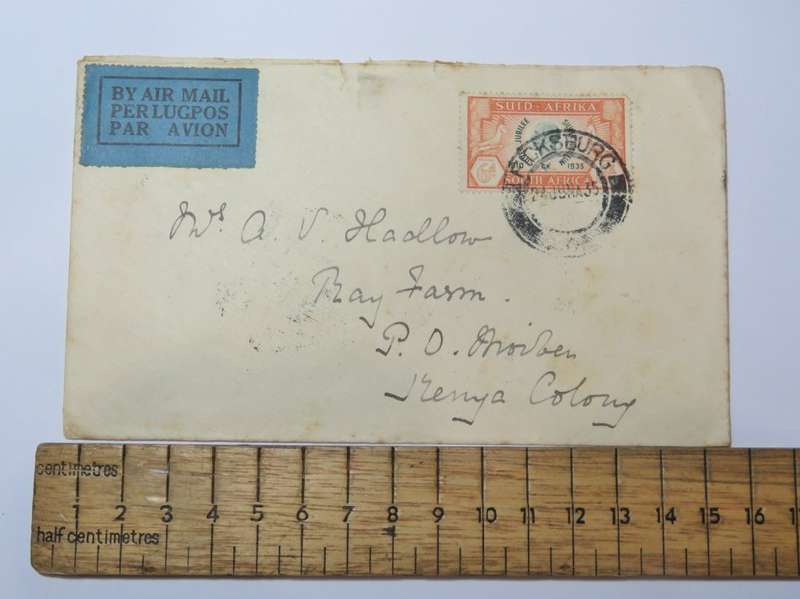 BY AIR MAIL
PER LUGPOS
PAR AVION
SUID-AFRIKA
JUBILEE
1935
6d
SOUTH AFRICA
FICKSBURG
24 JUN 35
Mrs A. V. Hadlow
Ray Farm.
P. O. Moiben
Kenya Colony
centimetres
1 2 3 4 5 6 7 8 9 10 11 12 13 14 15 16 1
half centimetres